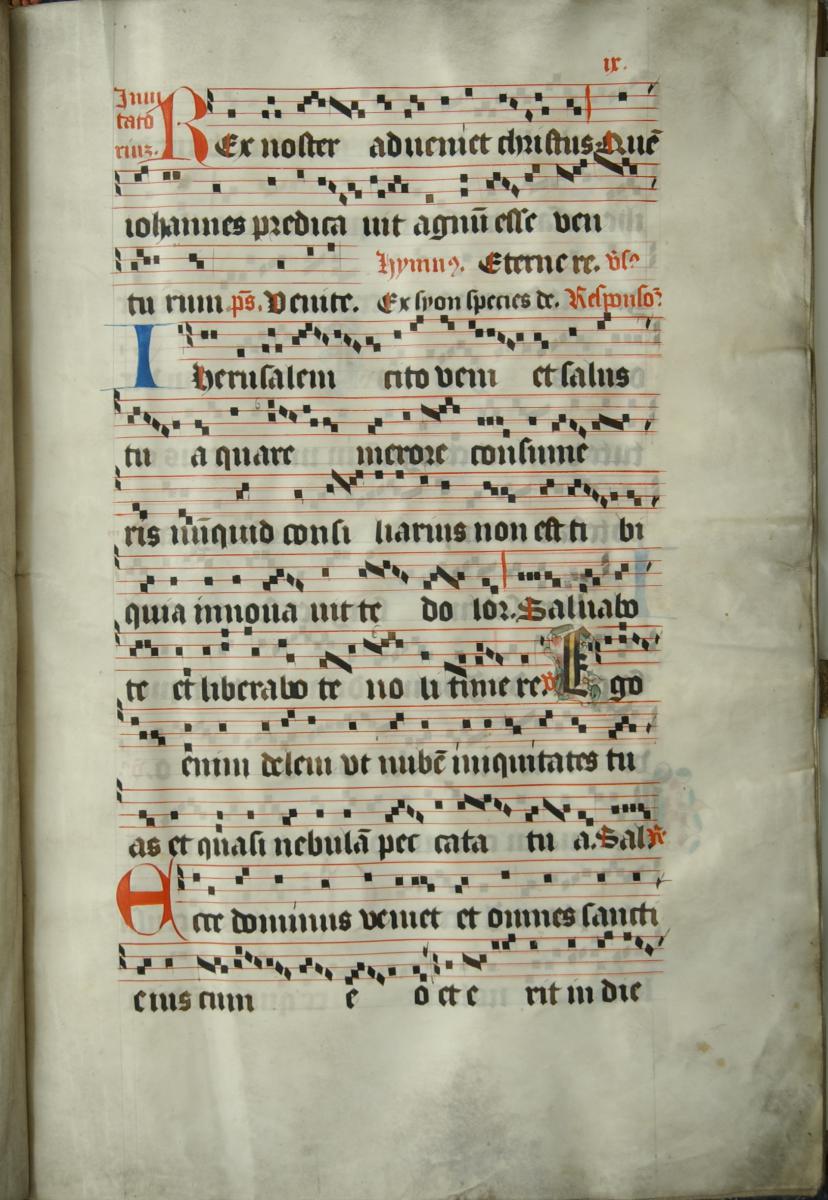 ix.
Inui
tato
riuz.
REx noster adueniet christus Quē
iohannes predica uit agnū esse ven
hymnꝰ. Eterne re. v̄sꝰ
tu rum ps̄. Venite. Ex syon species de. Responsoꝛ
Iherusalem cito veni et salus
tu a quare merore consume
ris nūquid consi liarius non est ti bi
quia innoua uit te do loꝛ. Saluabo
te et liberabo te no li time re. Ego
enim delem vt nubē iniquitates tu
as et quasi nebulā pec cata tu a. Sal
Ecce dominus veniet et omnes sancti
eius cum e o et e rit in die